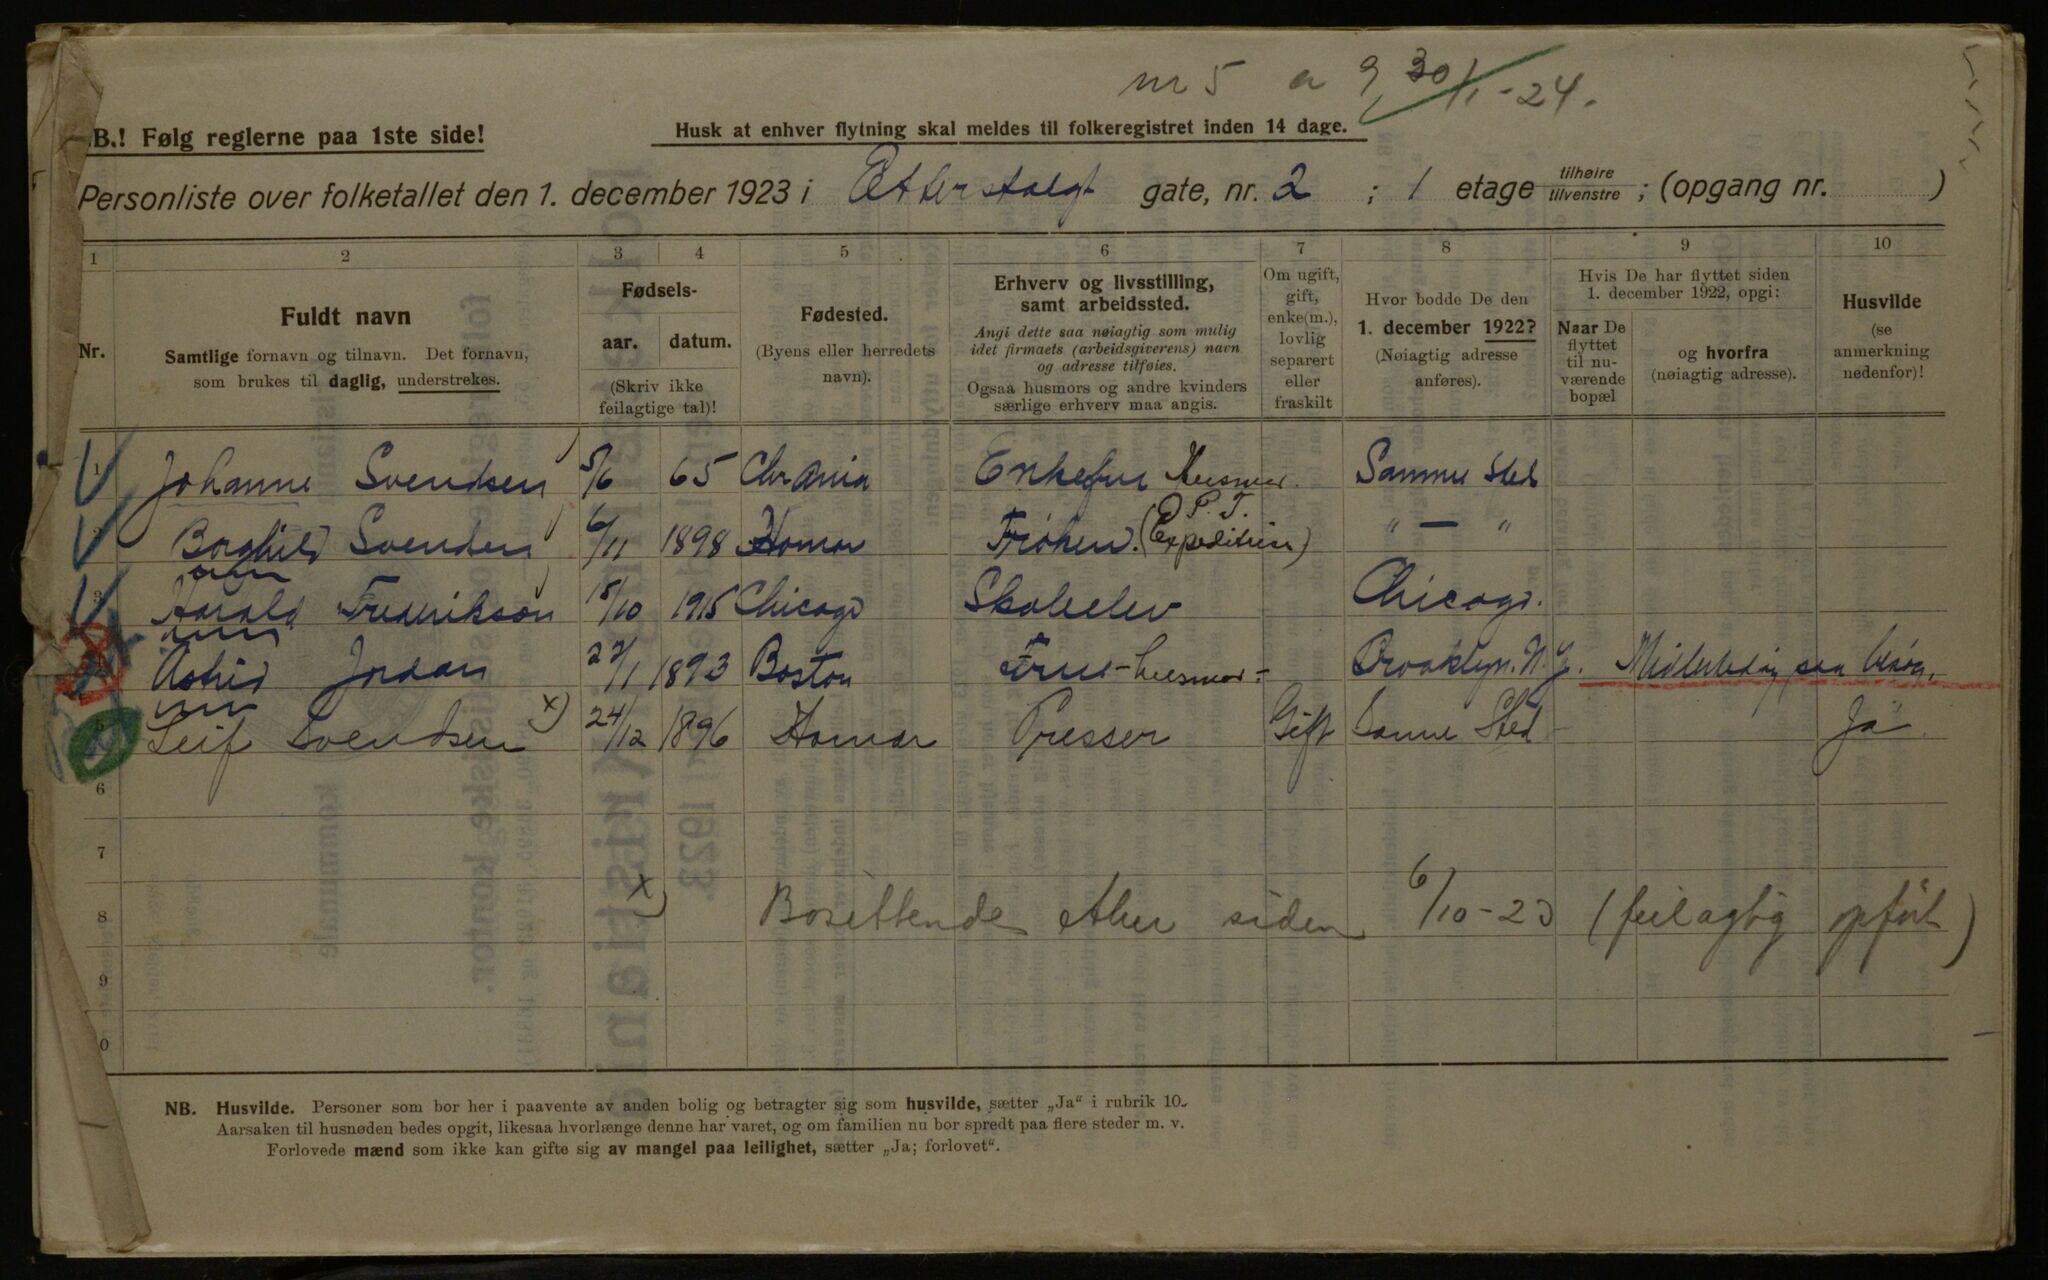 nr 5 a 9 30/1-24.
B.! Følg reglerne paa 1ste side!
Husk at enhver flytning skal meldes til folkeregistret inden 14 dage.
Personliste over folketallet den 1. december 1923 i Etterstadgt gate, nr. 2 ; 1 etage tilhøire tilvenstre ; (opgang nr. )
1 2 3 4 5 6 7 8 9 10
Nr.
Fuldt navn
Samtlige fornavn og tilnavn. Det fornavn,
som brukes til daglig, understrekes.
Fødsels-
aar. datum.
(Skriv ikke
feilagtige tal)!
Fødested.
(Byens eller herredets
navn).
Erhverv og livsstilling,
samt arbeidssted.
Angi dette saa nøiagtig som mulig
idet firmaets (arbeidsgiverens) navn
og adresse tilføies.
Ogsaa husmors og andre kvinders
særlige erhverv maa angis.
Om ugift,
gift,
enke(m.),
lovlig
separert
eller
fraskilt
Hvor bodde De den
1. december 1922?
(Nøiagtig adresse
anføres).
Hvis De har flyttet siden
1. december 1922, opgi:
Naar De
flyttet
til nu-
værende
bopæl
og hvorfra
(nøiagtig adresse).
Husvilde
(se
anmerkning
nedenfor)!
1 Johanne Svendsen 5/6 65 Chrania Enkefru Husmor. Samme Sted
2 Borghild Svendsen 6/11 1898 Hamar Frøken. (P. T. Expeditrise) " — "
3 Harald Frederikson 18/10 1915 Chicago Skoleelev Chicago.
4 Astrid Jordan 27/1 1893 Boston Frue - husmor - Brooklyn. N.Y. Midlertidig paa besøg.
5 Leif Svendsen x) 24/12 1896 Hamar Presser Gift Samme Sted Ja
6
7
8 x) Bosittende etter siden 6/10-23 (feilagtig opført)
9
0
NB. Husvilde. Personer som bor her i paavente av anden bolig og betragter sig som husvilde, sætter „Ja“ i rubrik 10.
Aarsaken til husnøden bedes opgit, likesaa hvorlænge denne har varet, og om familien nu bor spredt paa flere steder m. v.
Forlovede mænd som ikke kan gifte sig av mangel paa leilighet, sætter „Ja; forlovet“.